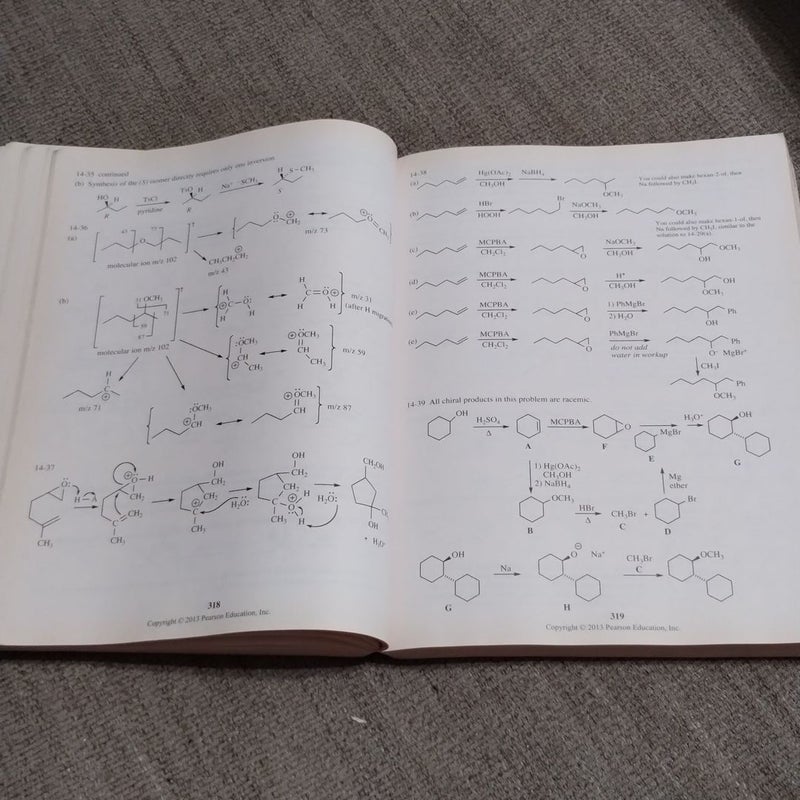 14-35 continued
(b) Synthesis of the (S) isomer directly requires only one inversion
HO H R
TsCl
pyridine
TsO H R
Na⁺ ⁻SCH₃
H S-CH₃ S
14-36
(a)
43 73
molecular ion m/z 102
CH₃CH₂CH₂
m/z 43
CH₂
m/z 73
(b)
31 OCH₃
71
59
87
molecular ion m/z 102
m/z 31
(after H migration
:ÖCH₃
CH
CH₃
m/z 59
m/z 71
:ÖCH₃
CH
m/z 87
14-37
H-A
CH₃
OH
CH₂
H₂O:
CH₂OH
OH
H₃O⁺
318
Copyright © 2013 Pearson Education, Inc.
14-38
(a)
Hg(OAc)₂
CH₃OH
NaBH₄
OCH₃
You could also make hexan-2-ol, then
Na followed by CH₃I.
(b)
HBr
HOOH
Br
NaOCH₃
CH₃OH
OCH₃
You could also make hexan-1-ol, then
Na followed by CH₃I, similar to the
solution to 14-29(a).
(c)
MCPBA
CH₂Cl₂
O
NaOCH₃
CH₃OH
OCH₃
OH
(d)
MCPBA
CH₂Cl₂
O
H⁺
CH₃OH
OH
OCH₃
(e)
MCPBA
CH₂Cl₂
O
1) PhMgBr
2) H₂O
Ph
OH
(e)
MCPBA
CH₂Cl₂
O
PhMgBr
do not add
water in workup
Ph
O⁻ MgBr⁺
CH₃I
Ph
OCH₃
14-39 All chiral products in this problem are racemic.
OH
H₂SO₄
Δ
A
MCPBA
O
F
MgBr
E
H₃O⁺
OH
G
1) Hg(OAc)₂
CH₃OH
2) NaBH₄
Mg
ether
OCH₃
B
HBr
Δ
CH₃Br
C
+
Br
D
OH
G
Na
O⊖ Na⁺
H
CH₃Br
C
OCH₃
319
Copyright © 2013 Pearson Education, Inc.